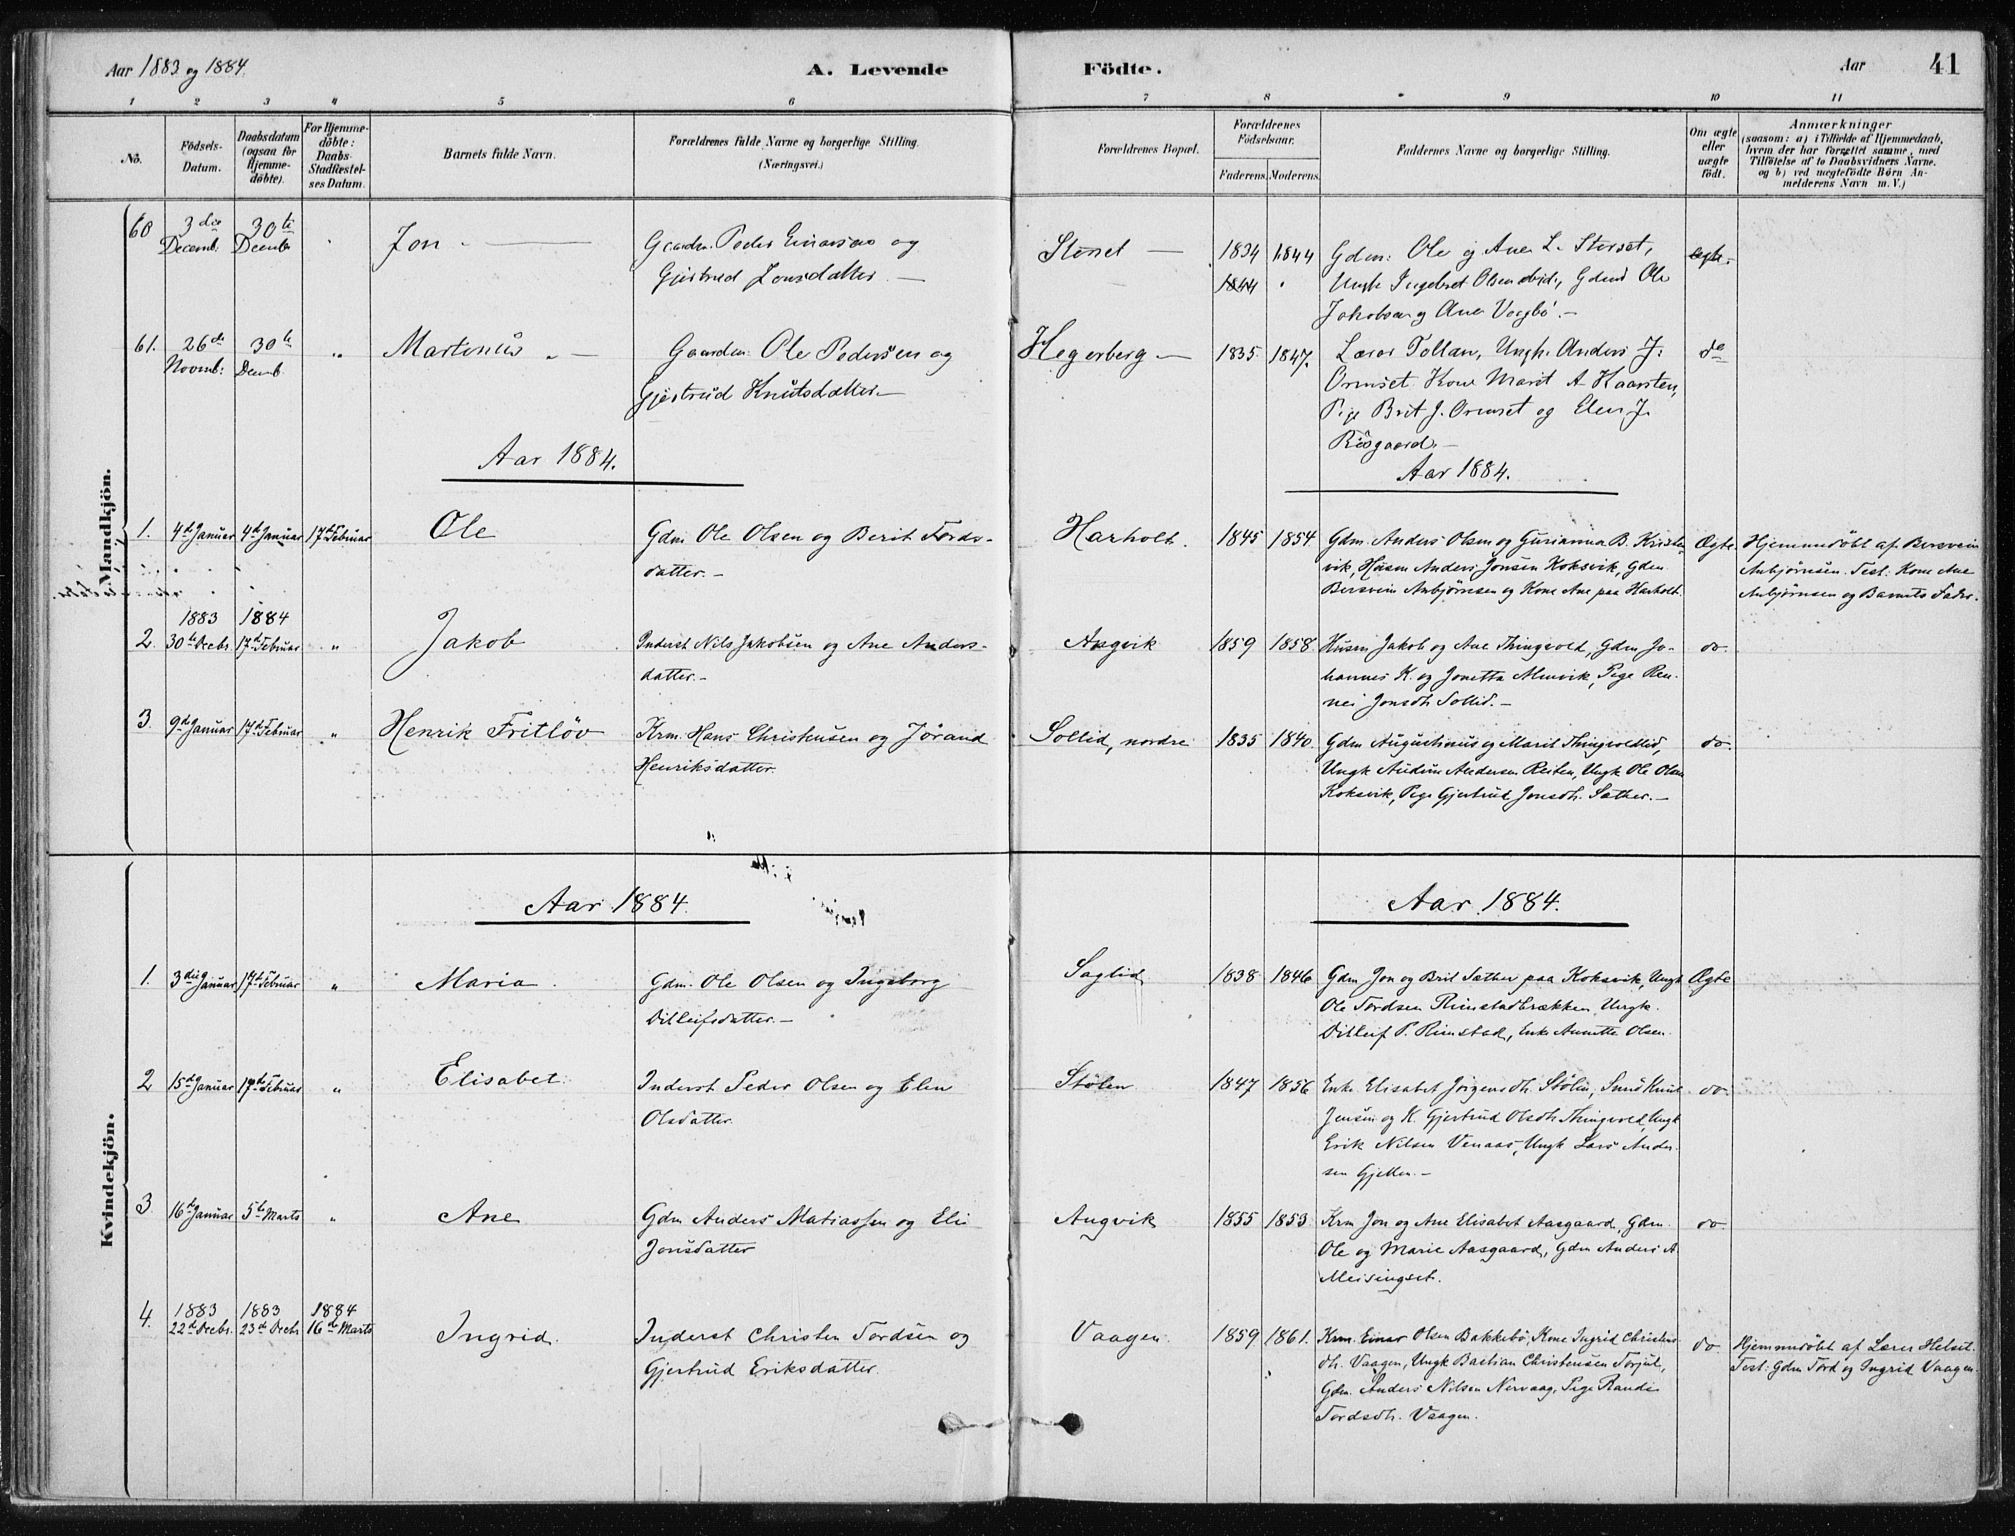 Aar 1883 og 1884.
A. Levende Födte.
Aar 41
1 2 3 4 5 6 7 8 9 10 11
Nö.
Födsels-Datum.
Daabsdatum (ogsaa for Hjemme-döbte).
For Hjemme-döbte: Daabs-Stadfæstelses Datum.
Barnets fulde Navn.
Forældrenes fulde Navne og borgerlige Stilling. (Næringsvei.)
Forældrenes Bopæl.
Forældrenes Födselsaar.
Faderens. Moderens.
Faddernes Navne og borgerlige Stilling.
Om ægte eller uægte födt.
Anmærkninger
(saasom: a) i Tilfælde af Hjemmedaab, hvem der har forrettet samme, med Tilföielse af to Daabsvidners Navne. og b) ved uægtefödte Börn Anmelderens Navn m. V.)
Mandkjön.
60 3die Decemb. 30te Decemb. Jon Gaardm. Peder Einarsen og
Gjertrud Jonsdatter. Storset 1834 1844 Gdm: Ole og Ane L. Storset,
1844 Ungk Ingebret Olsen ibid., Gdmd Ole
Jakobsen og Ane Vaagbö. ægte.
61. 26de Novmb: 30te Decmb. " Martinus Gaardm: Ole Pedersen og
Gjertrud Knutsdatter. Hegerberg 1835. 1847. Lærer Tollan, Ungk. Anders J.
Ormset. Kone Marit A Kaarsten,
Pige Brit J. Ormset og Elen J.
Risgaard. do
Aar 1884. Aar 1884.
1. 4de Januar 4de Januar 17de Februar Ole Gdm Ole Olsen og Berit Tords-
datter. Harholt. 1845 1854 Gdm. Anders Olsen og Gurianna B. Kristvik, Husm Anders Jonsen Koksvik, Gdm
Bersvein Anbjørnsen og Kone Ane paa Harholt. Ægte Hjemmedøbt af Bersvein
Anbjørnsen. Test: Kone Ane
Anbjørnsen og Barnets Fader.
2. 1883 30te Decbr. 1884 17de Februar " Jakob Inderst Nils Jakobsen og Ane Anders-
datter. Angvik 1859 1858 Husm Jakob og Ane Thingvold, Gdm Jo-
hannes K. og Jonetta Almvik, Pige Ren-
nei Jonsdtr Sollid. do.
3. 9de Januar 17de Februar " Henrik Fritløv Krm. Hans Christensen og Jørand
Henriksdatter. Sollid, nordre 1835 1840. Gdm Augustinus og Marit Thingvoldlid,
Ungk Audun Andersen Reiten, Ungk Ole Olsen
Koksvik, Pige Gjertrud Jonsdtr. Sæther. do.
Kvindekjön.
Aar 1884. Aar 1884.
1. 3die Januar 17de Februar " Maria Gdm. Ole Olsen og Ingeborg
Ditleifsdatter. Saglid 1838 1846 Gdm Jon og Brit Sæther paa Koksvik, Ungk
Ole Tordsen Rimstadbrækken Ungk.
Ditleif P. Rimstad, Enke Annette Olsen. Ægte
2 15de Januar 17de Februar " Elisabet Inderst Peder Olsen og Elen
Olsdatter. Stölen 1847 1856 Enke Elisabet Jörgensdtr. Stölen, Smed Knut
Jensen og K. Gjertrud Olsdtr Thingvold, Ungk
Erik Nilsen Venaas, Ungk Lars Ander-
sen Gjellen. do.
3. 16de Januar 5te Marts " Ane Gdm Anders Matiassen og Eli
Jonsdatter Angvik 1855 1853 Krm Jon og Ane Elisabet Aasgaard, Gdm.
Ole og Marie Aasgaard, Gdm Anders A.
Meisingset. do
4. 1883 22de Decbr. 1883 23de Decbr 1884 16de Marts Ingrid. Inderst Christen Tordsen og
Gjertrud Eriksdatter. Vaagen 1859 1861. Krm. Einar Olsen Bakkebö, Kone Ingrid Christens-
dtr. Vaagen, Ungk Bastian Christensen Torjul,
Gdm. Anders Nilsen Nervaag, Pige Randi
Tordsdtr. Vaagen. do. Hjemmedöbt af Lærer Helset.
Test: Gdm Tord og Ingrid Vaagen.